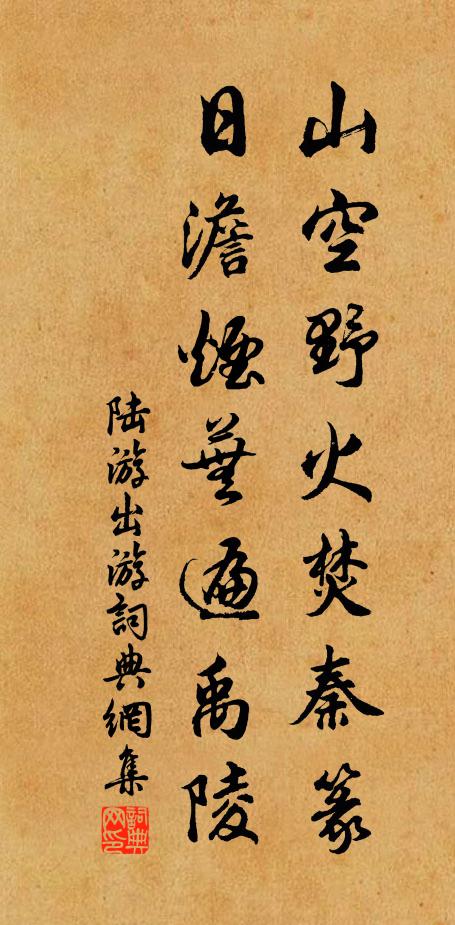 山空野火焚秦篆
日澹煙蕪遍禹陵
陆游出游詞典網集
詞典网印